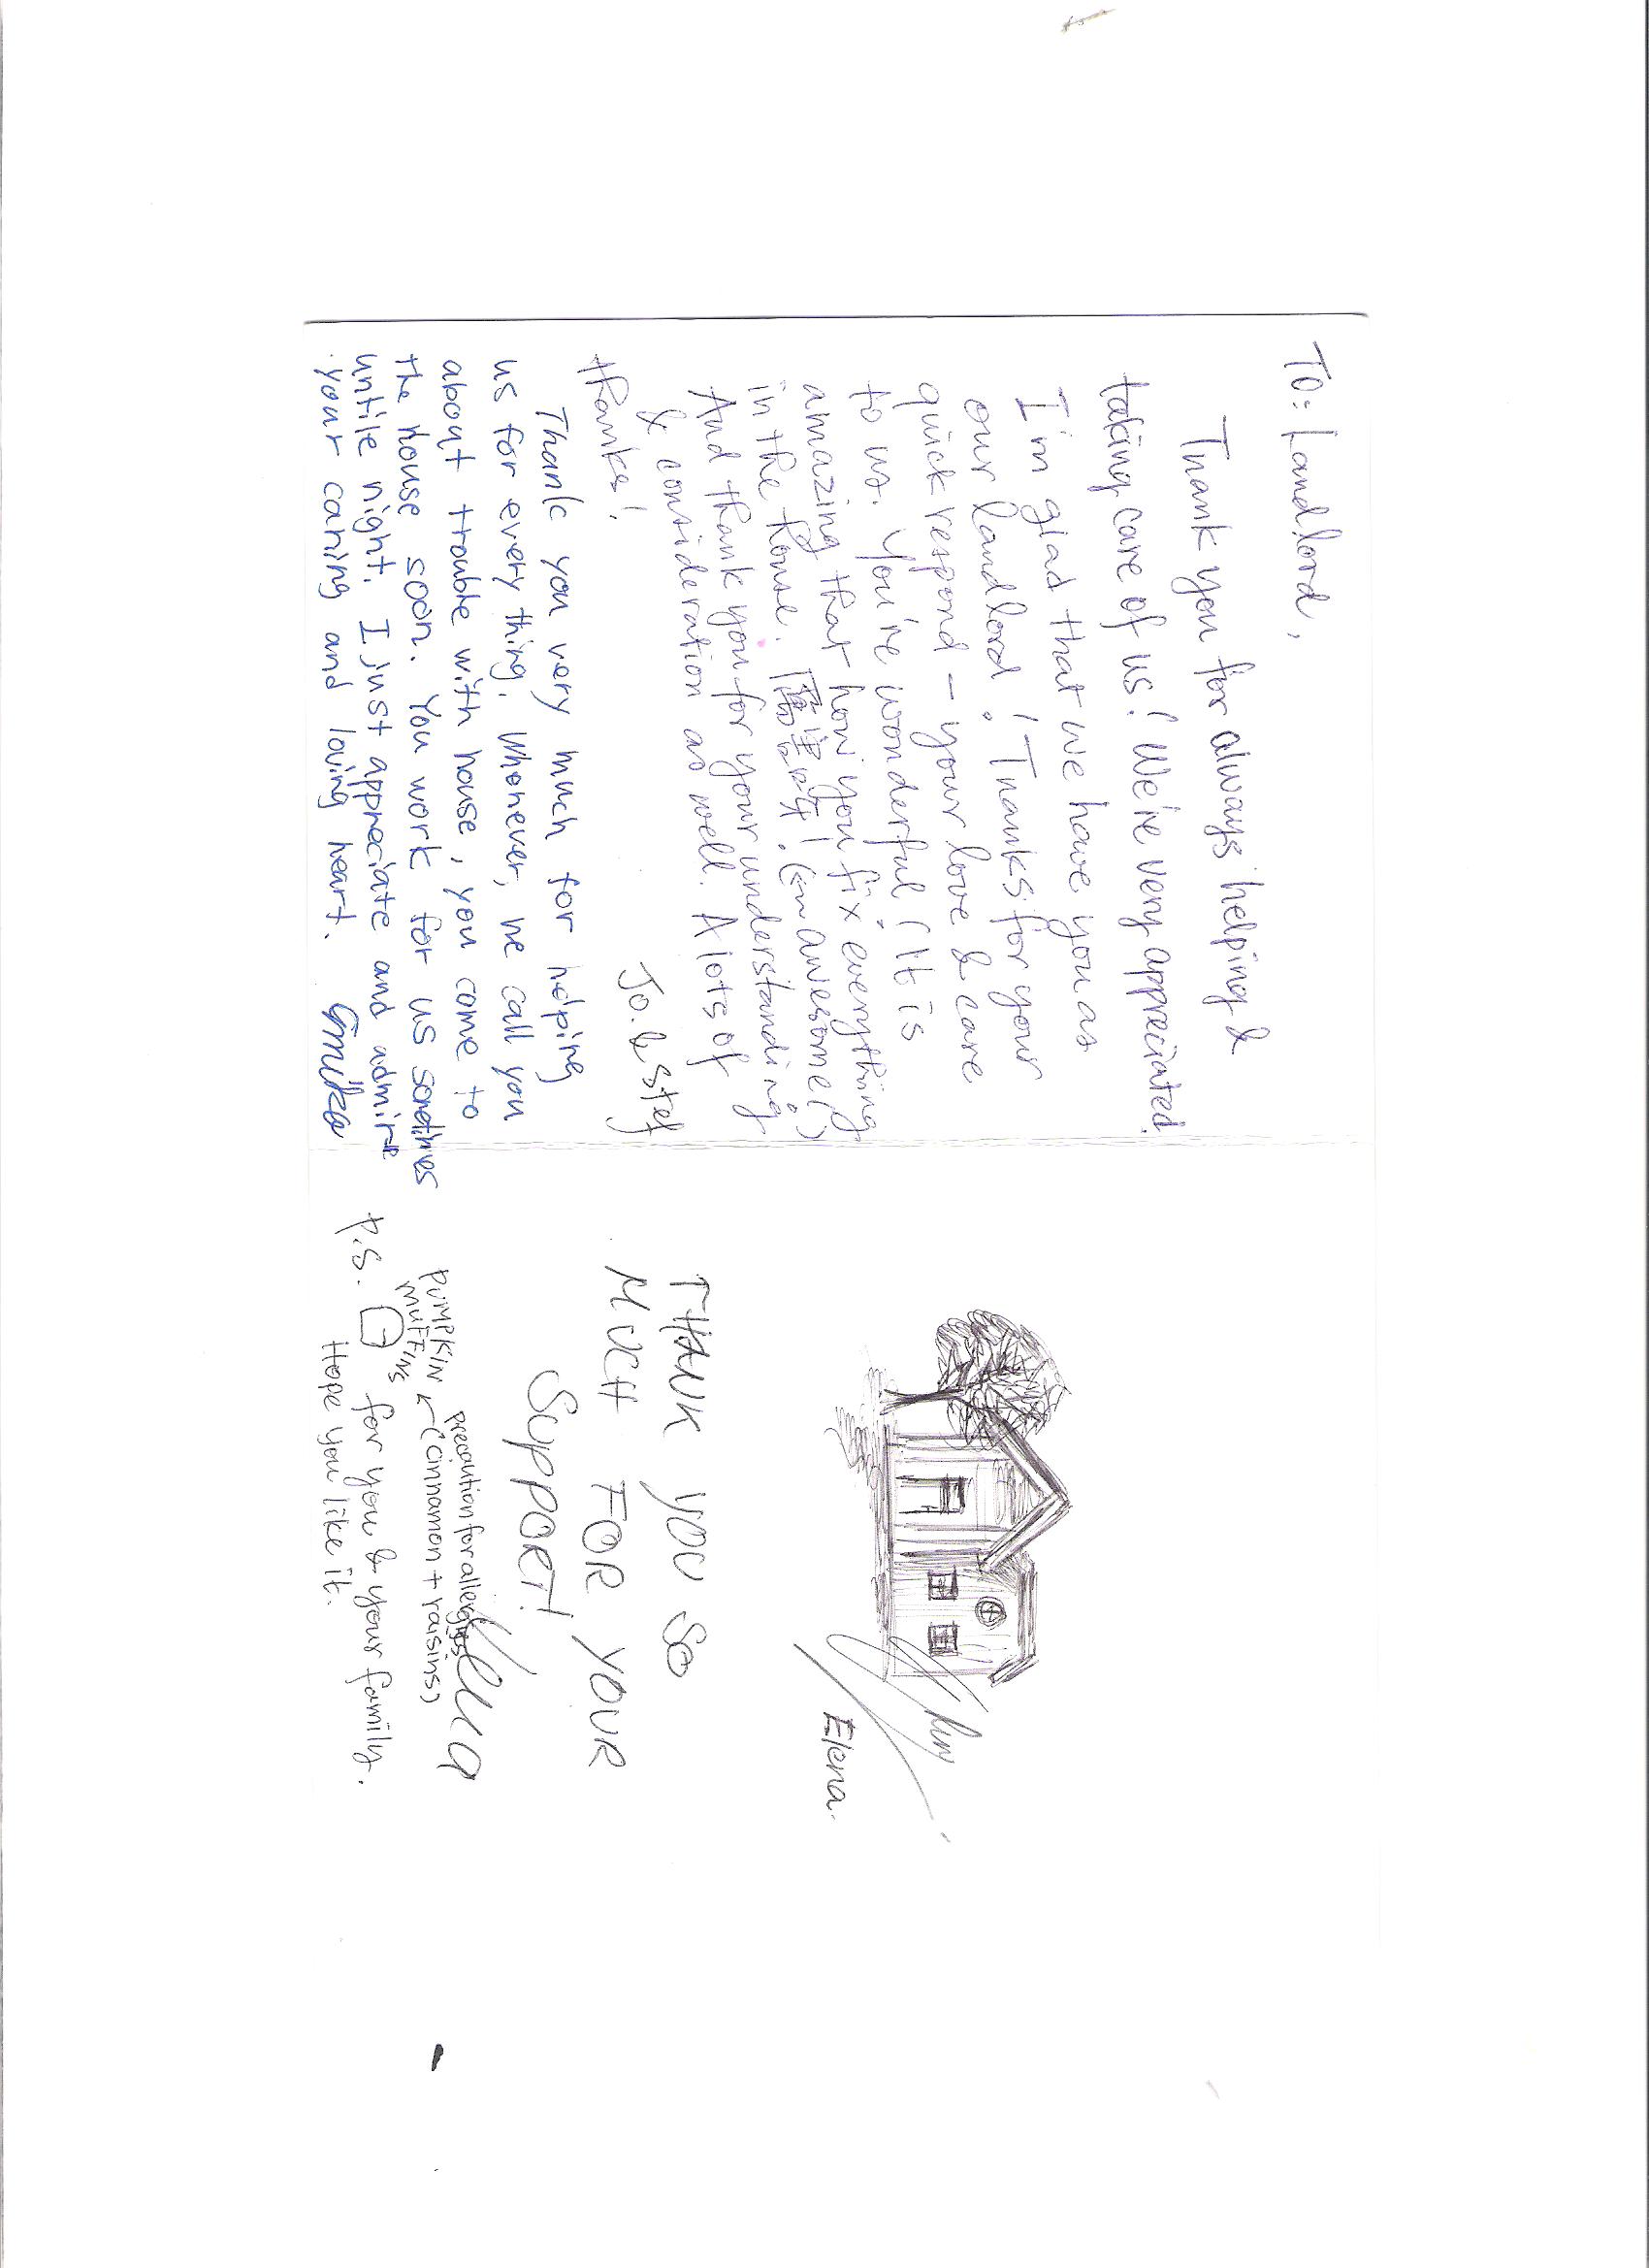 To: Landlord,
Thank you for always helping &
taking care of us! We're very appreciated.
I'm glad that we have you as
our landlord! Thanks for your
quick respond - your love & care
to us. You're wonderful! It is
amazing that how you fix everything
in the house. 厲害呀! (= awesome!)
And thank you for your understanding
& consideration as well. A lots of
thanks!
Jo. & Stef
Thank you very much for helping
us for every thing. Whenever, we call you
about trouble with house, you come to
the house soon. You work for us sometimes
untile night. I just appreciate and admire
your caring and loving heart.
Elena.
THANK YOU SO
MUCH FOR YOUR
SUPPORT!
precaution for allergies
PUMPKIN ← (cinnamon + raisins)
MUFFINS
P.S. for you & your family.
Hope you like it.